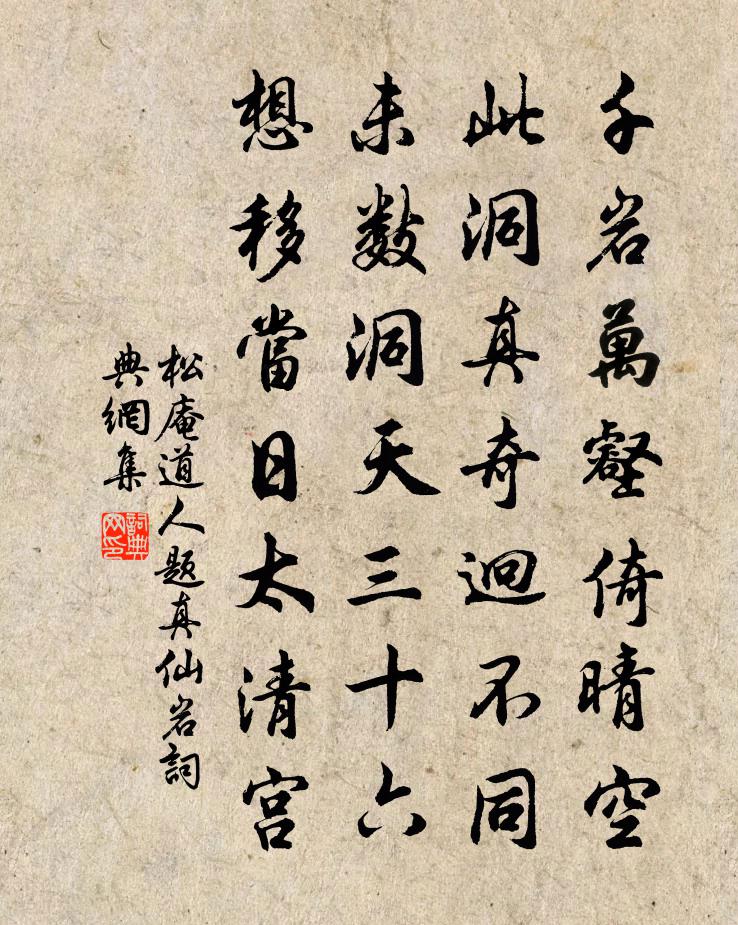 千岩萬壑倚晴空
此洞真奇迥不同
未数洞天三十六
想移當日太清宫
松庵道人题真仙岩詞
典網集
詞典
网印